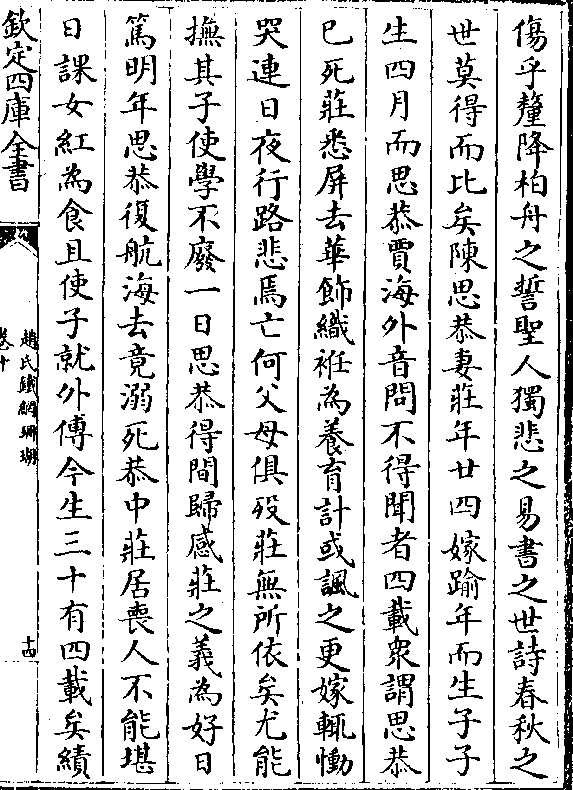 傷乎釐降柏舟之誓聖人獨悲之易書之世詩春秋之
世莫得而比矣陳思恭妻莊年廿四嫁踰年而生子子
生四月而思恭賈海外音問不得聞者四載衆謂思恭
已死莊悉屏去華飾織袵為養育計或諷之更嫁輒慟
哭連日夜行路悲焉亡何父母俱殁莊無所依矣尤能
撫其子使學不廢一日思恭得間歸感莊之義為好日
篤明年思恭復航海去竟溺死恭中莊居喪人不能堪
日課女紅為食且使子就外傅今生三十有四載矣績
欽定四庫全書
趙氏鐵網珊瑚
卷十
十四